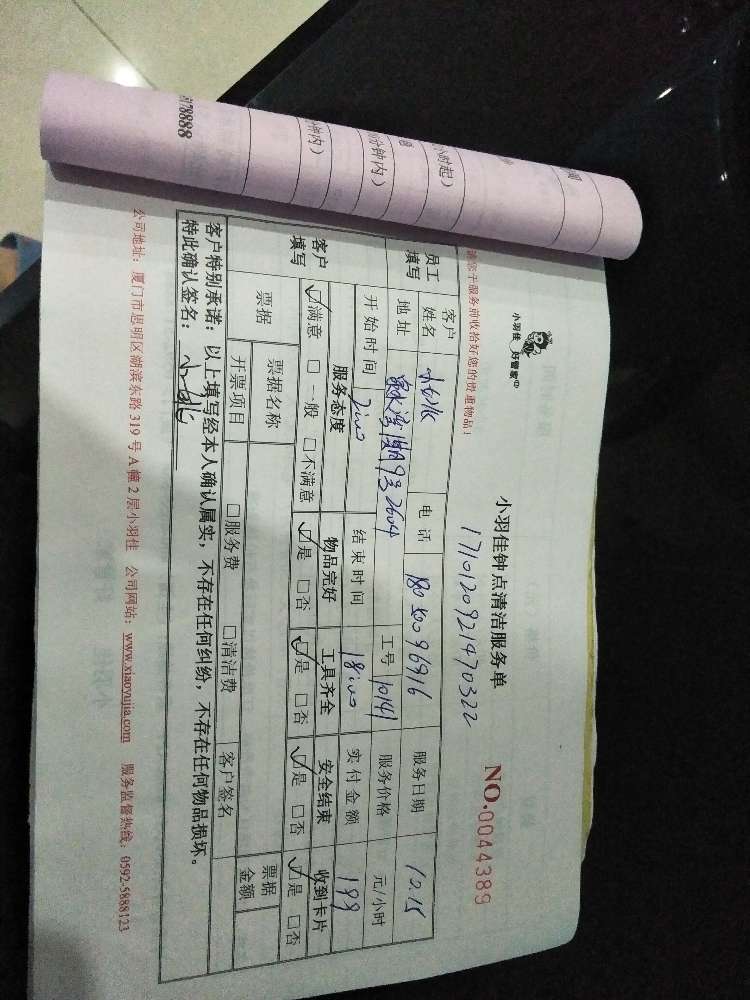 78888
小时起）
分钟内）
钟内）
小羽佳 好管家
小羽佳钟点清洁服务单
1710120921470322
NO.0044389
请您于服务前收拾好您的贵重物品！
员工填写
客户姓名 电话 18050096916 服务日期 10.15
地址 9号2604 工号 10141 服务价格 元/小时
开始时间 结束时间 18:00 实付金额 199
客户填写
服务态度 物品完好 工具齐全 安全结束 收到卡片
☑满意 □一般 □不满意 ☑是 □否 ☑是 □否 ☑是 □否 ☑是 □否
票据 票据名称 票据金额
开票项目 □服务费 □清洁费 客户签名
客户特别承诺：以上填写经本人确认属实，不存在任何纠纷，不存在任何物品损坏。
特此确认签名：
公司地址：厦门市思明区湖滨东路 319 号 A 幢 2 层小羽佳 公司网站：www.xiaoyujia.com 服务监督热线：0592-5888123